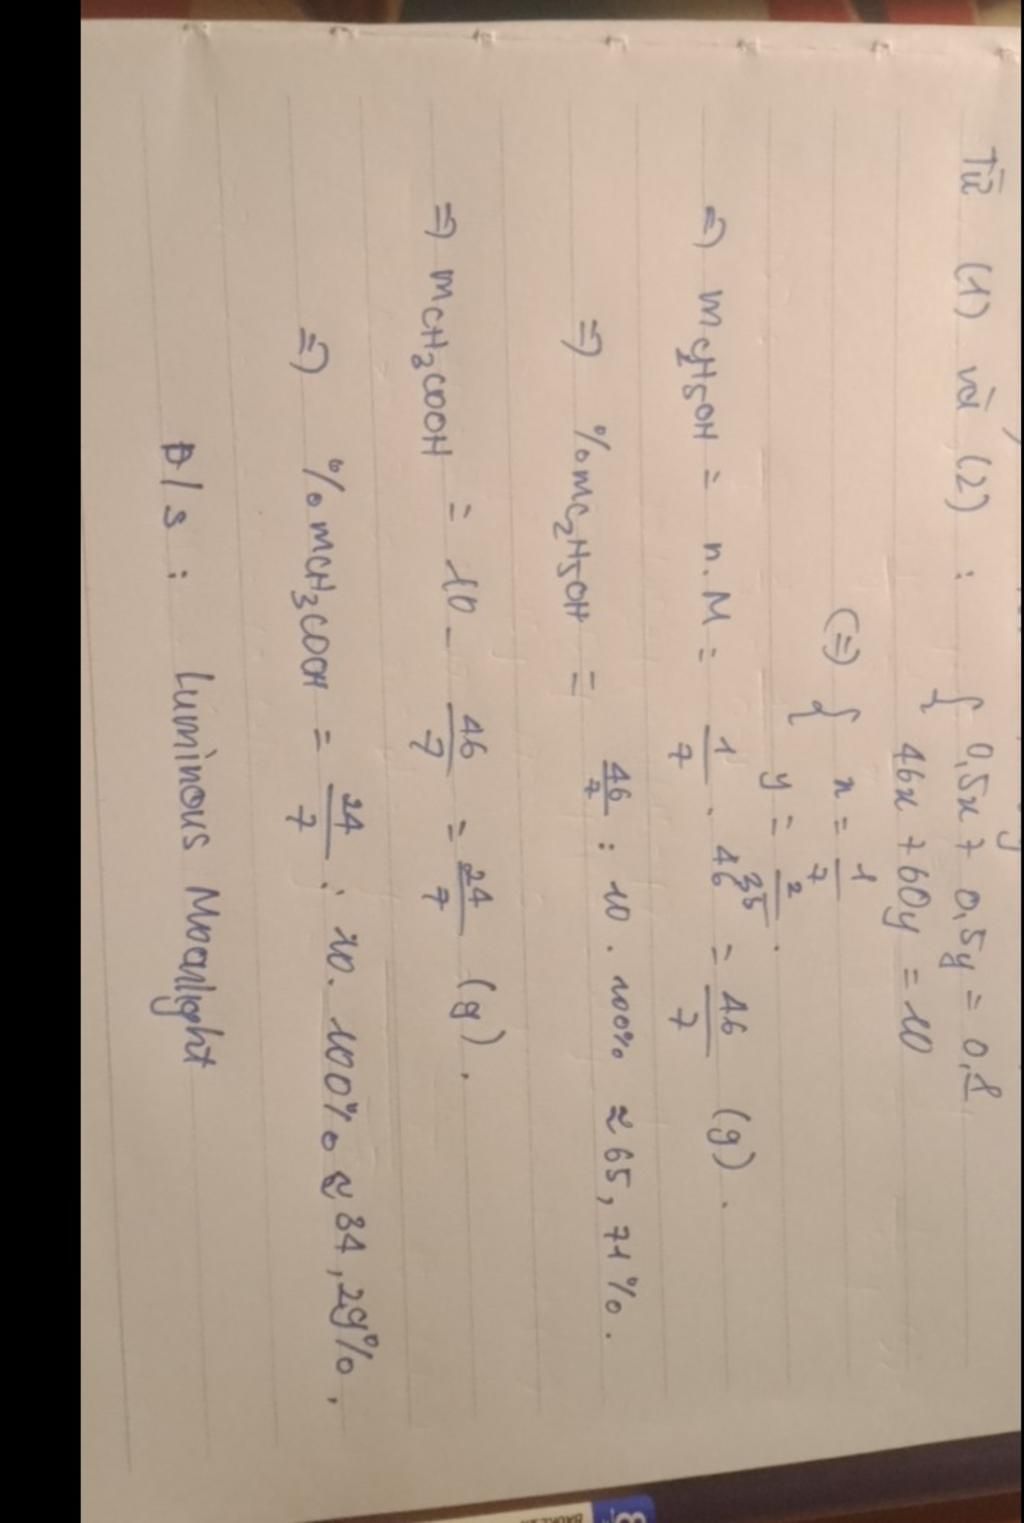 Từ (1) và (2) : { 0,5x + 0,5y = 0,1
46x + 60y = 10
(=) { x = 1/7
y = 2/35 .
=) mC2H5OH = n.M = 1/7 . 46 = 46/7 (g).
=) %mC2H5OH = 46/7 : 10 . 100% ≈ 65,71%.
=) mCH3COOH = 10 - 46/7 = 24/7 (g).
=) %mCH3COOH = 24/7 : 10. 100% ≈ 34,29%.
Đ/s : Luminous Moonlight